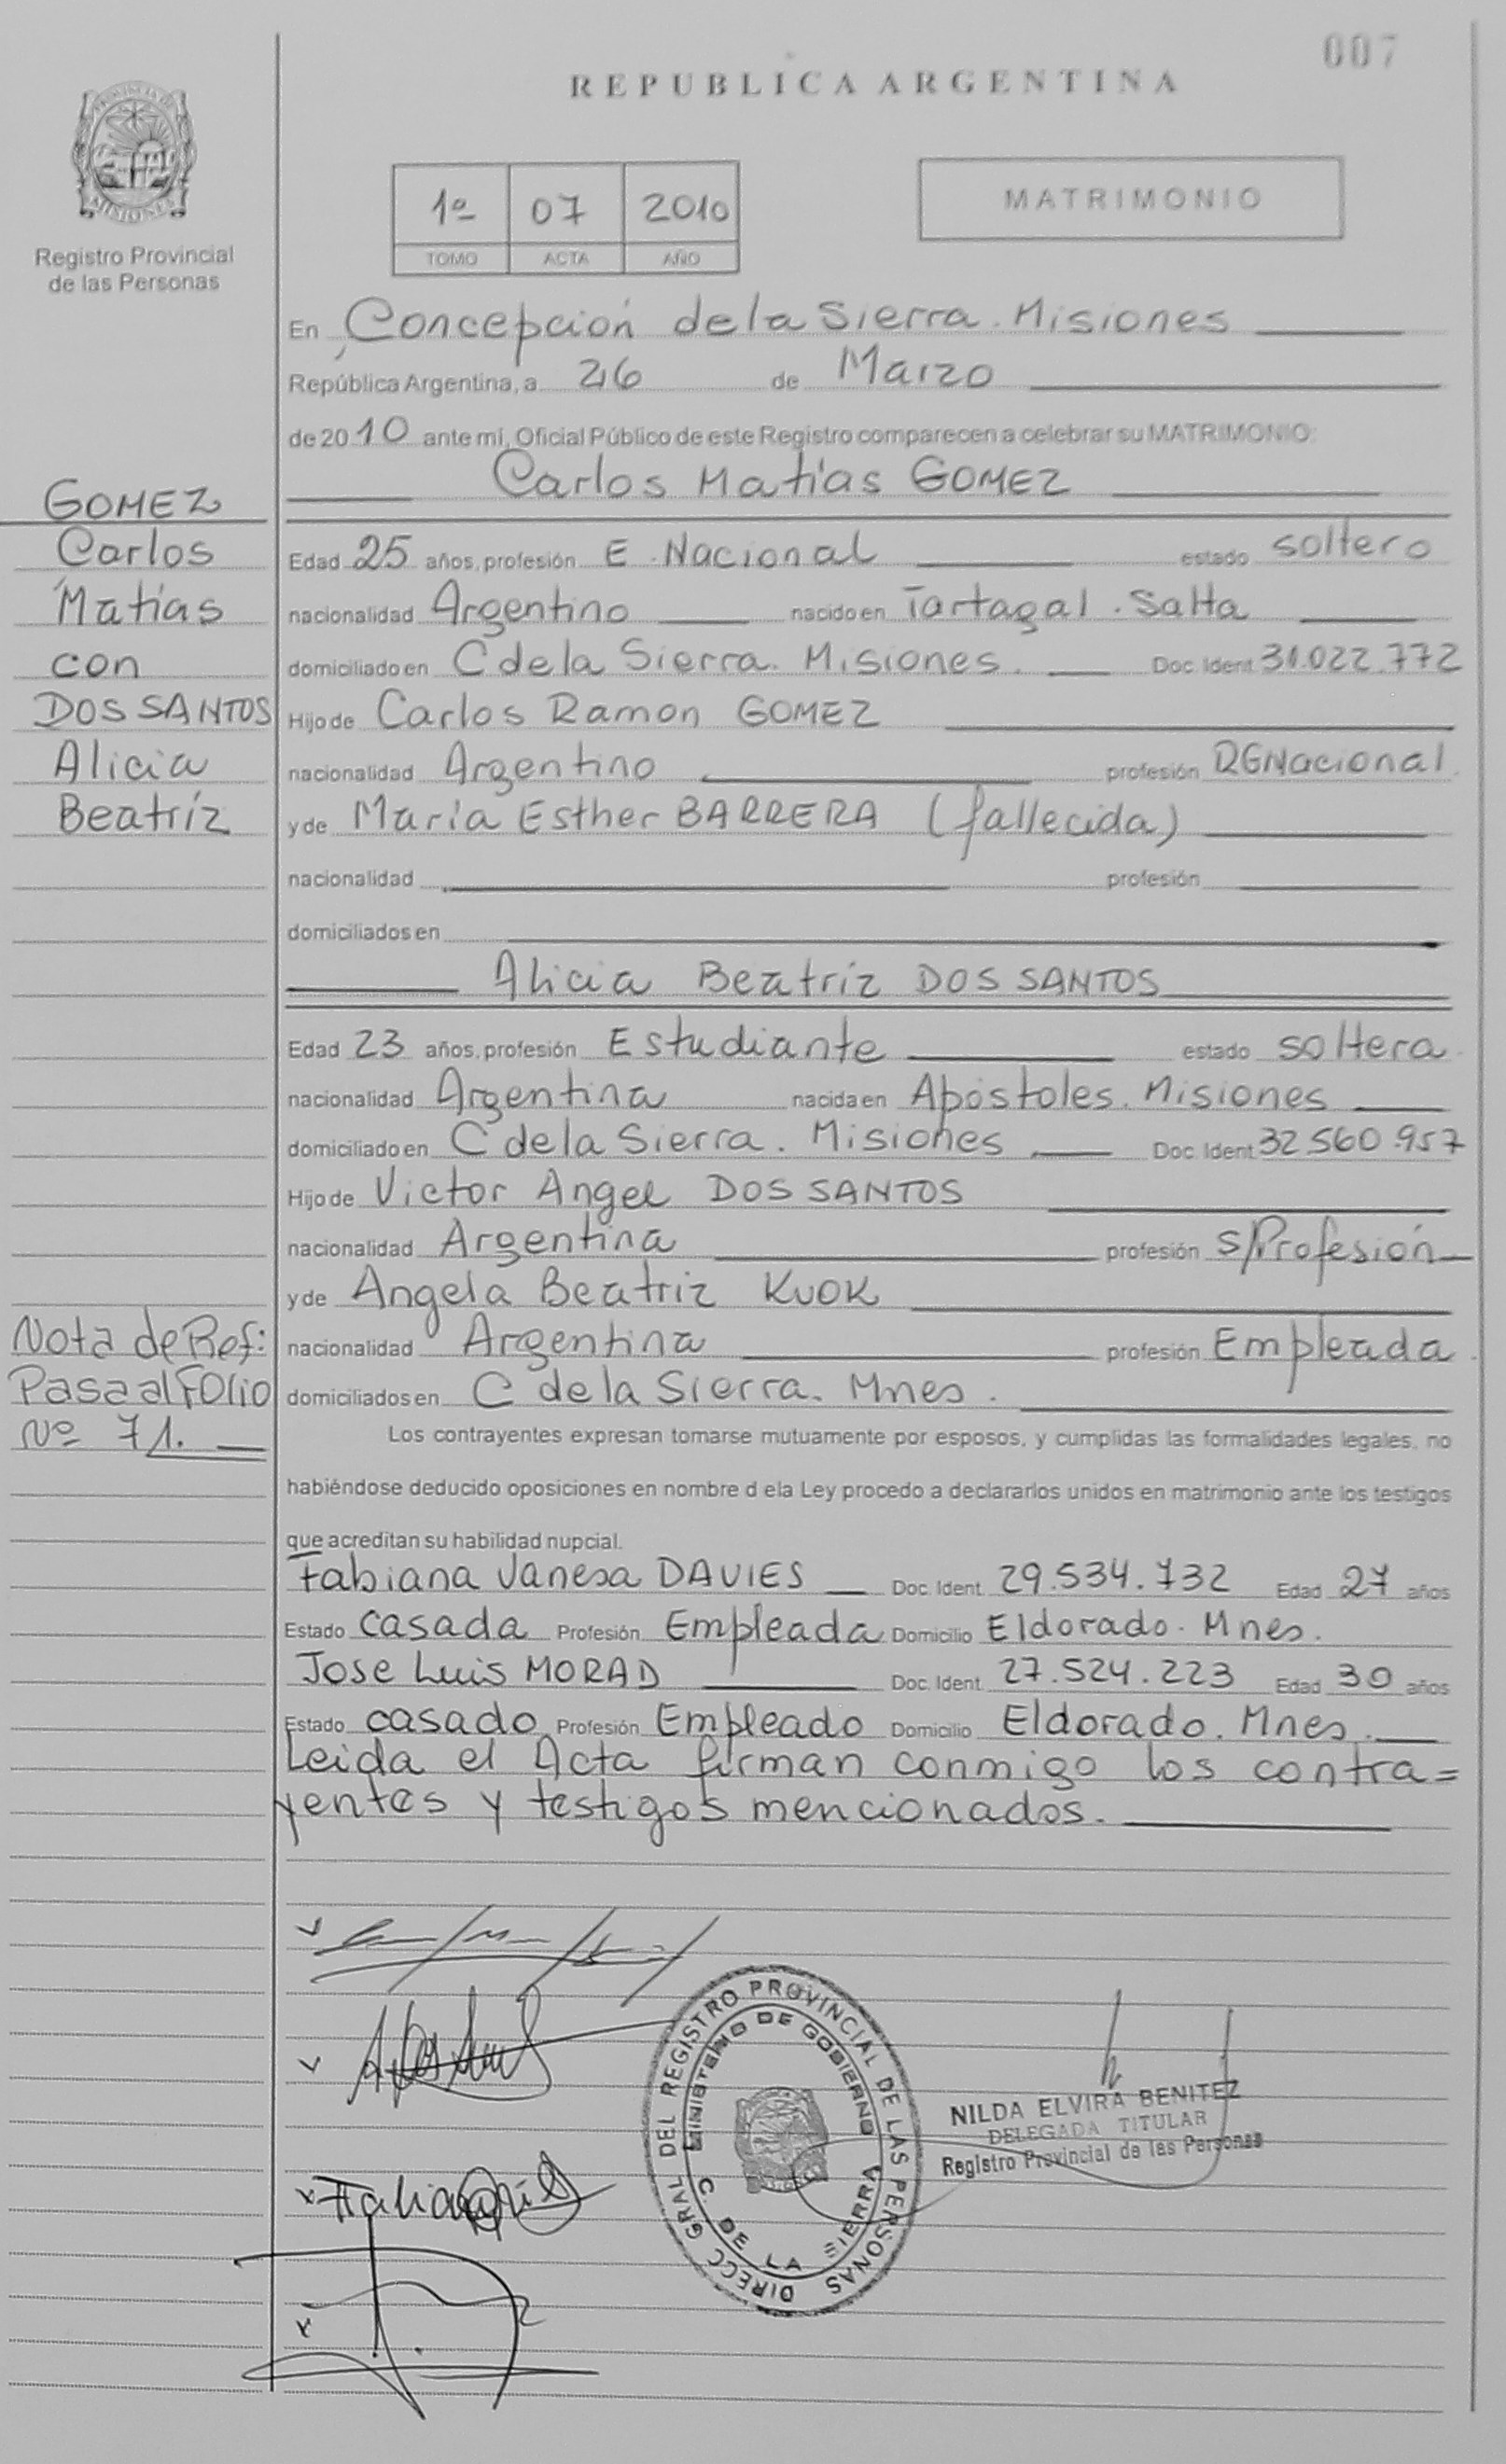 007
REPUBLICA ARGENTINA
Registro Provincial
de las Personas
1º 07 2010
TOMO ACTA AÑO
MATRIMONIO
En Concepción de la Sierra. Misiones
República Argentina, a 26 de Marzo
de 2010 ante mi, Oficial Público de este Registro comparecen a celebrar su MATRIMONIO:
Carlos Matías GOMEZ
GOMEZ
Carlos
Matías
con
DOS SANTOS
Alicia
Beatríz
Edad 25 años, profesión E. Nacional estado soltero
nacionalidad Argentino nacido en Tartagal. Salta
domiciliado en C de la Sierra. Misiones. Doc. Ident. 31.022.772
Hijo de Carlos Ramon GOMEZ
nacionalidad Argentino profesión RGNacional.
y de María Esther BARRERA (fallecida)
nacionalidad profesión
domiciliados en
Alicia Beatríz DOS SANTOS
Edad 23 años, profesión Estudiante estado soltera.
nacionalidad Argentina nacida en Apóstoles. Misiones
domiciliado en C de la Sierra. Misiones Doc. Ident. 32.560.957
Hijo de Victor Angel DOS SANTOS
nacionalidad Argentina profesión S/Profesión
y de Angela Beatriz KUOK
nacionalidad Argentina profesión Empleada.
domiciliados en C de la Sierra. Mnes.
Nota de Ref:
Pasa al FOlio
Nº 71.
Los contrayentes expresan tomarse mutuamente por esposos, y cumplidas las formalidades legales, no
habiéndose deducido oposiciones en nombre d ela Ley procedo a declararlos unidos en matrimonio ante los testigos
que acreditan su habilidad nupcial.
Fabiana Vanesa DAVIES Doc. Ident. 29.534.732 Edad 27 años
Estado casada Profesión Empleada Domicilio Eldorado. Mnes.
Jose Luis MORAD Doc. Ident. 27.524.223 Edad 30 años
Estado casado Profesión Empleado Domicilio Eldorado. Mnes.
Leida el Acta firman conmigo los contra=
yentes y testigos mencionados.
DIRECC GRAL DEL REGISTRO PROVINCIAL DE LAS PERSONAS
MINISTERIO DE GOBIERNO
C. DE LA SIERRA
NILDA ELVIRA BENITEZ
DELEGADA TITULAR
Registro Provincial de las Personas